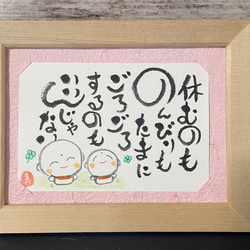 休むのも
のんびりも
たまに
ごろごろ
するのも
いいじゃない